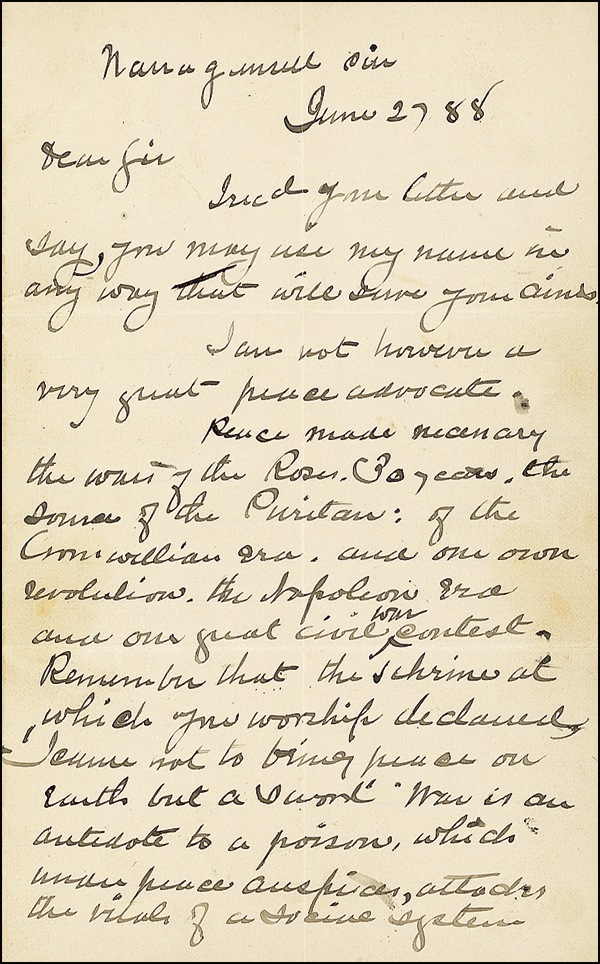 Narragansett Pier
June 27 88
Dear Sir
I rec'd your letter and
say, you may use my name in
any way that will serve your aims.
I am not however a
very great peace advocate.
Peace made necessary
the wars of the Roses. 30 years. the
source of the Puritan: of the
Cromwillian era. and our own
revolution. the Napoleon era
and our great civil war contest.
Remember that the shrine at
which you worship declared,
"I came not to bring peace on
earth but a sword" War is an
antidote to a poison, which
under peace auspices, attacks
the vitals of a social system